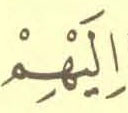 اِلَيْهِمْ